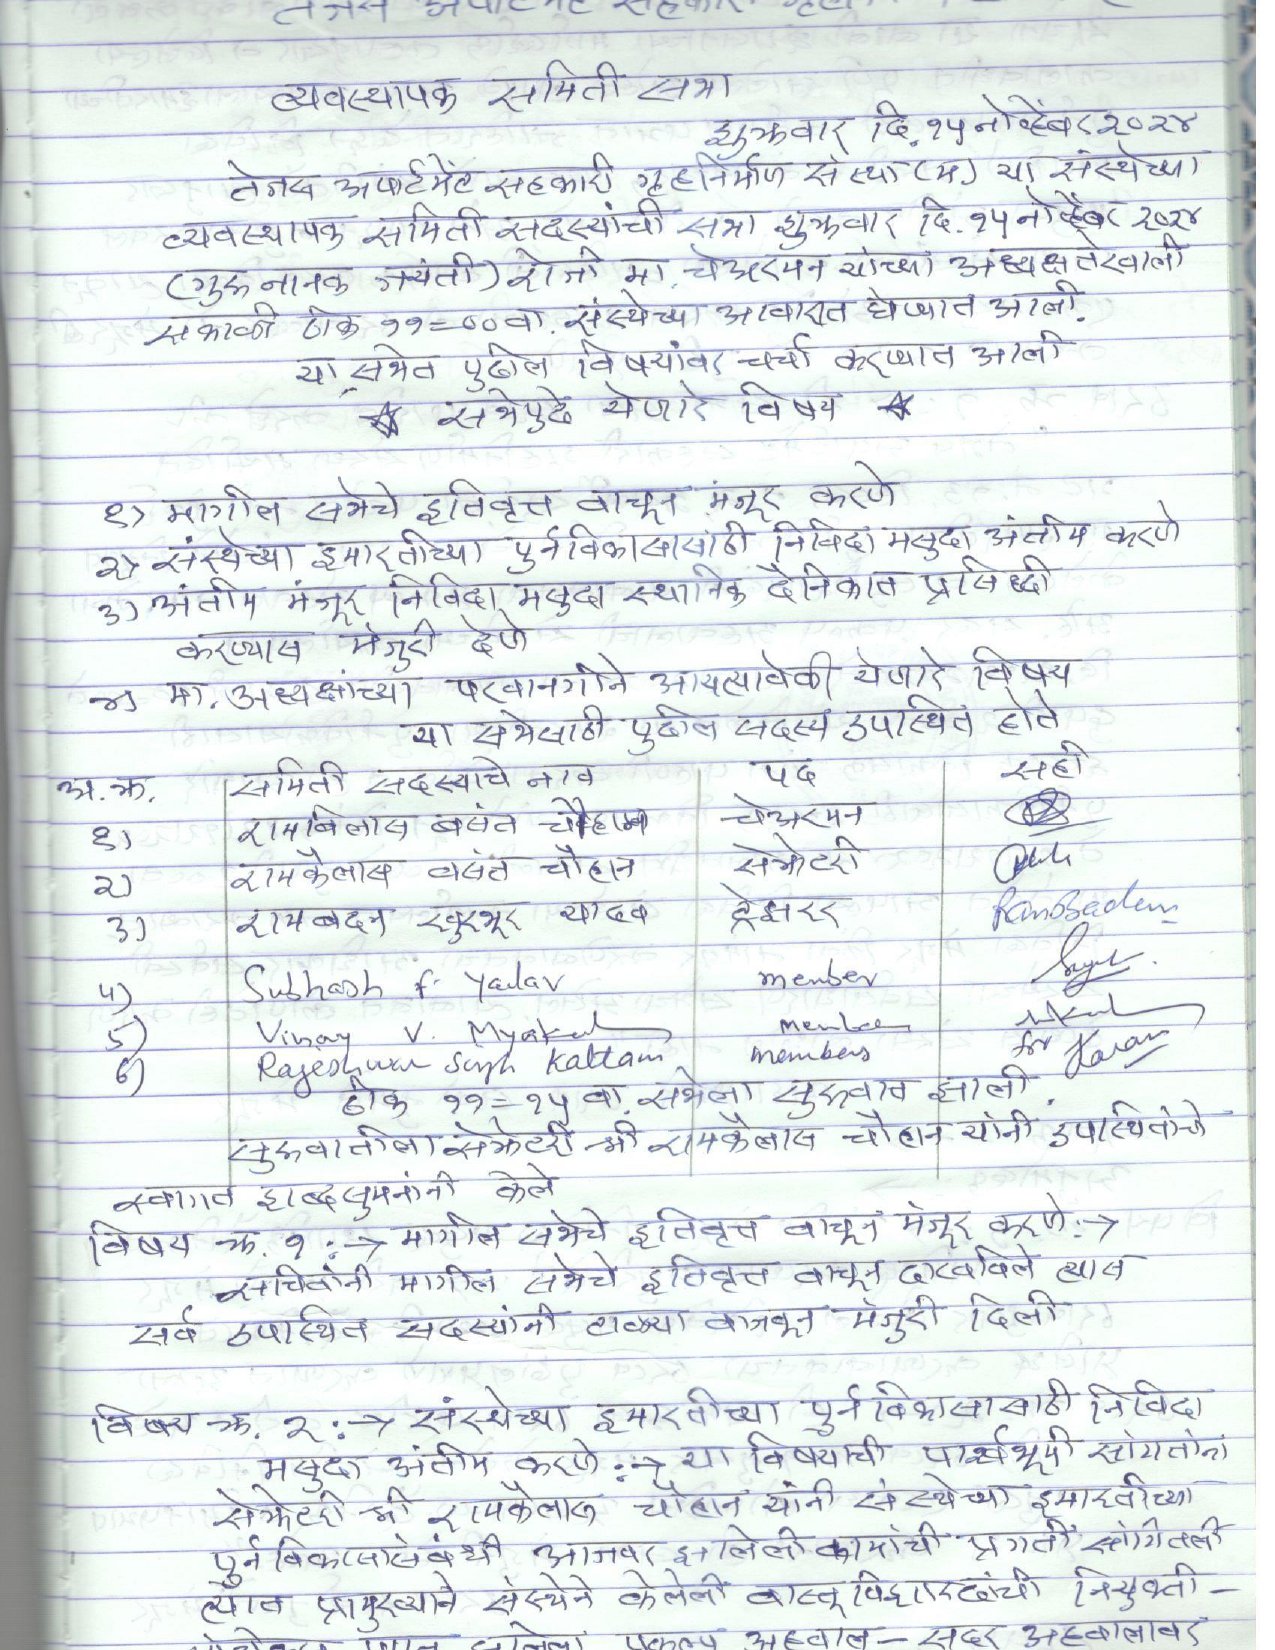 तेजस अपार्टमेंट सहकारी
व्यवस्थापक समिती सभा
शुक्रवार दि. १५ नोव्हेंबर २०२४
तेजस अपार्टमेंट सहकारी गृहनिर्माण संस्था (म.) या संस्थेच्या
व्यवस्थापक समिती सदस्यांची सभा शुक्रवार दि. १५ नोव्हेंबर २०२४
(गुरू नानक जयंती) रोजी मा. चेअरमन यांच्या अध्यक्षतेखाली
सकाळी ठीक ११=०० वा. संस्थेच्या आवारात घेण्यात आली.
या सभेत पुढील विषयांवर चर्चा करण्यात आली
☆ सभेपुढे येणारे विषय ☆
१) मागील सभेचे इतिवृत्त वाचून मंजूर करणे
२) संस्थेच्या इमारतीच्या पुर्नविकासासाठी निविदा मसुदा अंतीम करणे
३) अंतीम मंजूर निविदा मसुदा स्थानिक दैनिकात प्रसिध्दी
करण्यास मंजुरी देणे
४) मा. अध्यक्षांच्या परवानगीने आयत्यावेळी येणारे विषय
या सभेसाठी पुढील सदस्य उपास्थित होते
अ.क्र. समिती सदस्याचे नाव पद सही
१) रामबिलास बसंत चौहान चेअरमन
२) रामकैलास वसंत चौहान सेक्रेटरी
३) रामबदन खुरभूर यादव ट्रेझरर RamBadan
४) Subhash F. Yadav member
5) Vinay V. Myakal Member
6) Rajeshwar Singh Kattam members for Karan
ठीक ११=१५ वा. सभेला सुरूवात झाली.
सुरूवातीला सेक्रेटरी श्री रामकैलास चौहान यांनी उपास्थितांचे
स्वागत शब्दसुमनांनी केले
विषय क्र. १ :-> मागील सभेचे इतिवृत्त वाचून मंजूर करणे :->
सचिवांनी मागील सभेचे इतिवृत्त वाचून दाखविले त्यास
सर्व उपास्थित सदस्यांनी टाळ्या वाजवून मंजुरी दिली
विषय क्र. २ :-> संस्थेच्या इमारतीच्या पुर्नविकासासाठी निविदा
मसुदा अंतीम करणे :-> या विषयाची पार्श्वभूमी सांगताना
सेक्रेटरी श्री रामकैलास चौहान यांनी संस्थेच्या इमारतीच्या
पुर्नविकासासंबंधी आजवर झालेली कामांची प्रगती सांगितली
त्यात प्रामुख्याने संस्थेने केलेली वास्तूविशारदांची नियुक्ती -
प्रकल्प अहवाल - सदर अहवालावर